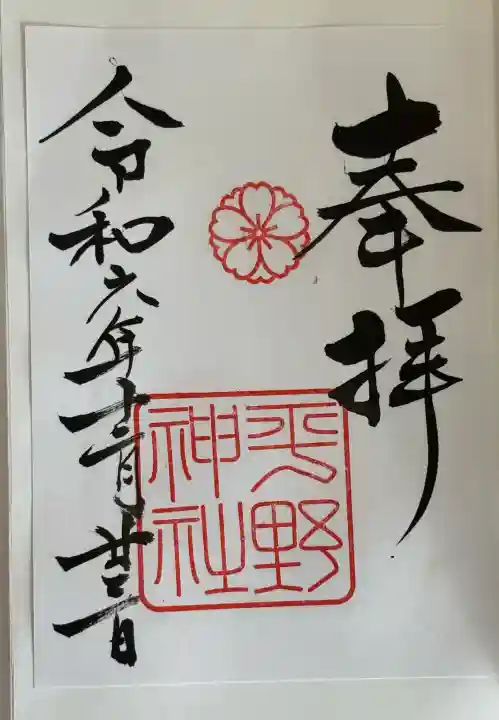 奉拝
平野
神社
令和六年十二月廿二日